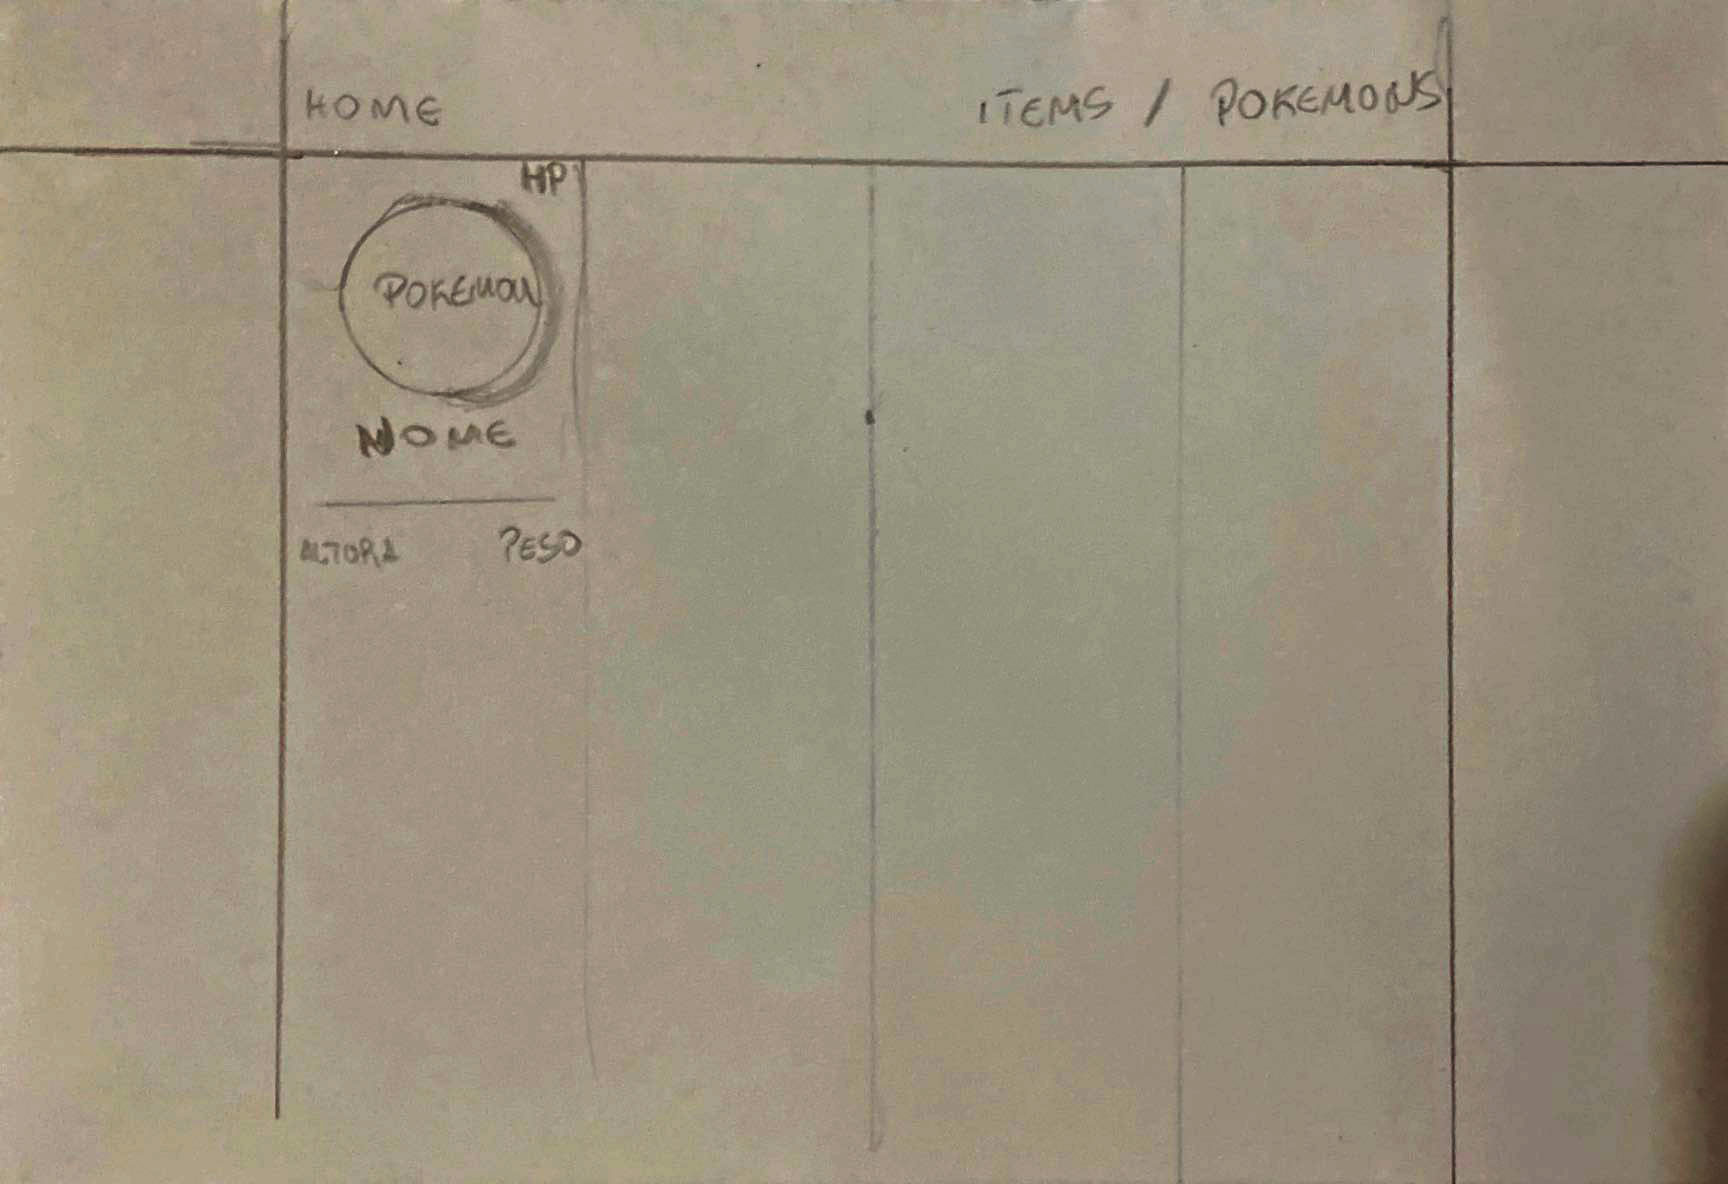 HOME ITEMS / POKEMONS
HP
POKEMON
NOME
ALTORA PESO